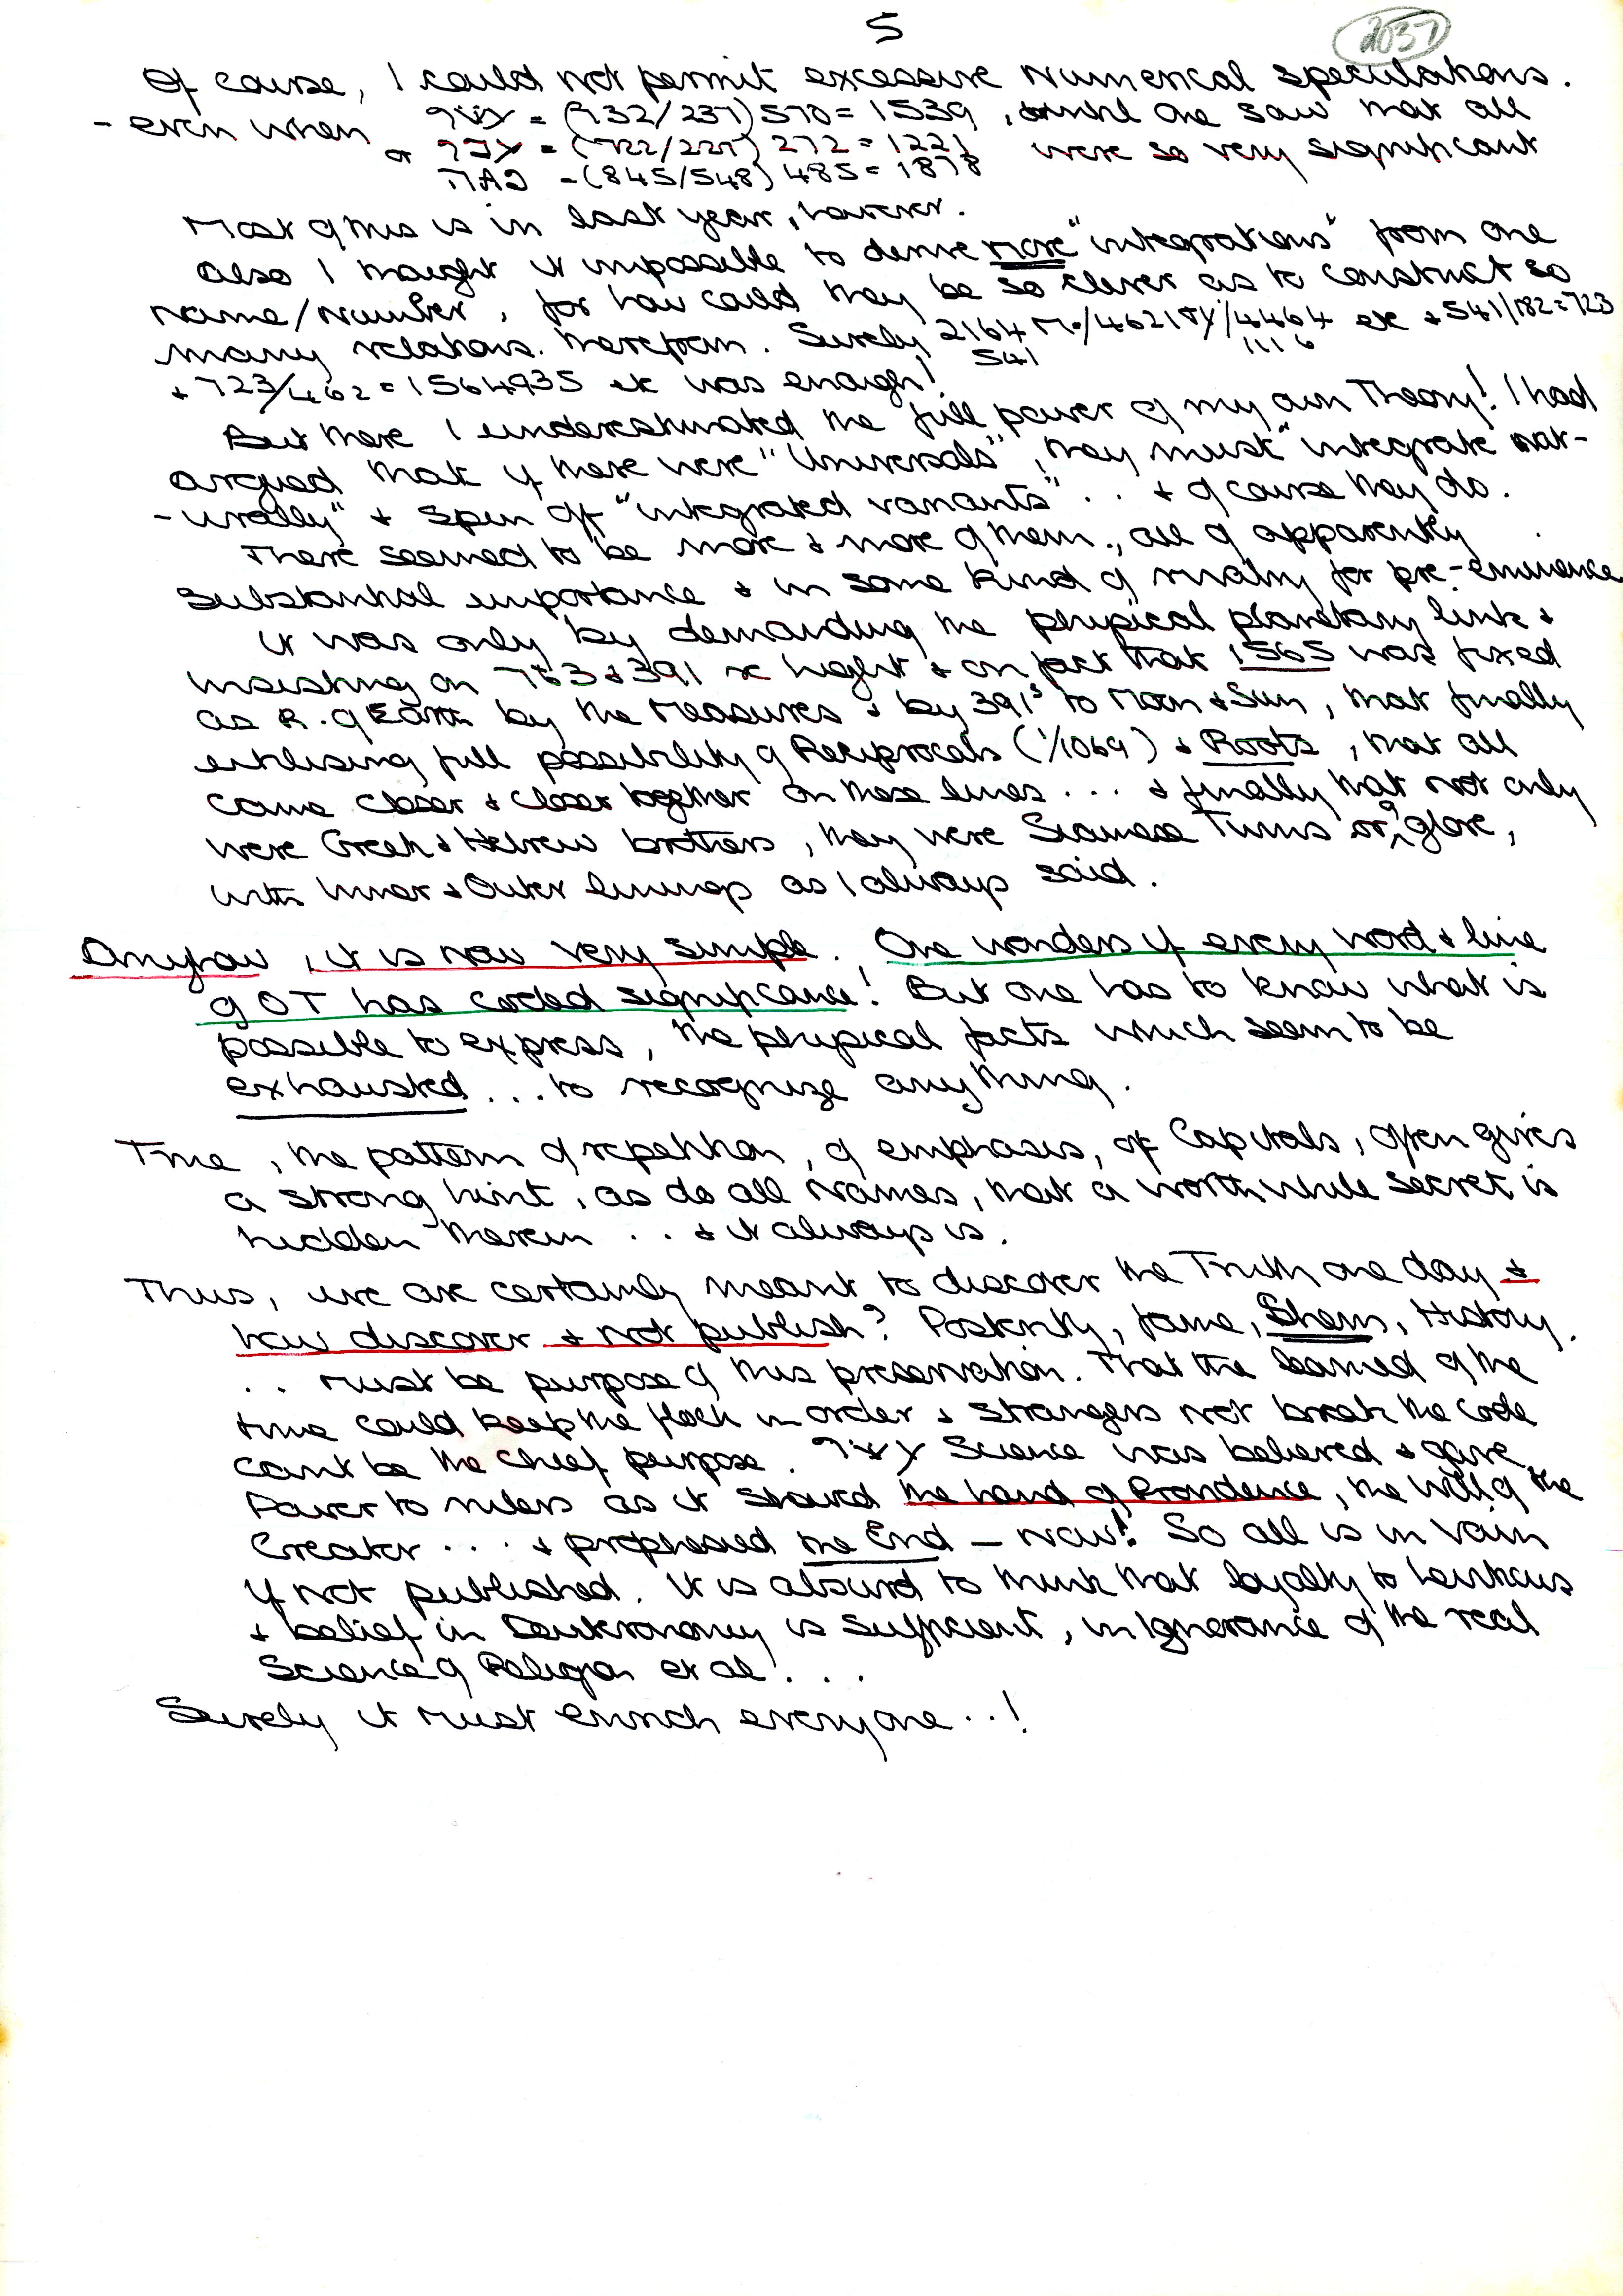 5
2037
Of cause, I could not permit excessive Numerical speculations.
- even when = (732/237) 570 = 1539, until one saw that all
or = (722/227) 272 = 1221 were so very significant
= (845/548) 485 = 1878
Most of this is in last year, however.
Also I thought it impossible to derive more "integrations" from one
Name/Number, for how could they be so clever as to construct so
many relations therefrom. Surely 2164 /4621 /4464 etc + 541/182 = 723
541 1116
+ 723/462 = 1564935 etc was enough!
But there I underestimated the full power of my own Theory! I had
argued that if there were "Universals", they must "integrate nat-
-urally" + spin off "integrated variants" .. + of cause they do.
There seemed to be more + more of them., all of apparently
substantial importance + in some kind of rivalry for pre-eminence
It was only by demanding the physical planetary link +
insisting on + 391 hight + on fact that 1565 was fixed
as R. of Earth by the Measures + by 391³ to Moon + Sun, that finally
utilising full possibility of Reciprocals (1/1069) + Roots, that all
came closer + closer together on these lines ... + finally that not only
were Greek + Hebrew brothers, they were Siamese Twins glove,
with Inner + Outer linings as I always said.
Anyhow, it is now very simple. One wonders if every word + line
of OT has coded significance! But one has to know what is
possible to express, the physical facts which seem to be
exhausted ... to recognize anything.
True, the pattern of repetition, of emphasis, of Capitals, often gives
a strong hint, as do all Names, that a worth while secret is
hidden therein .. + it always is.
Thus, we are certainly meant to discover the Truth one day +
how discover + not publish? Posterity, fame, Shem, History.
.. must be purpose of this preservation. That the learned of the
time could keep the flock in order + strangers not break the code
cant be the chief purpose. Science was believed + gave
Power to rulers as it showed the hand of Providence, the Will of the
Creator ... + prophesied the End — Now! So all is in vain
if not published. It is absurd to think that loyalty to Leviticus
+ belief in Deuteronomy is sufficient, in ignorance of the real
Science of Religion et al! ...
Surely it must enrich everyone ..!